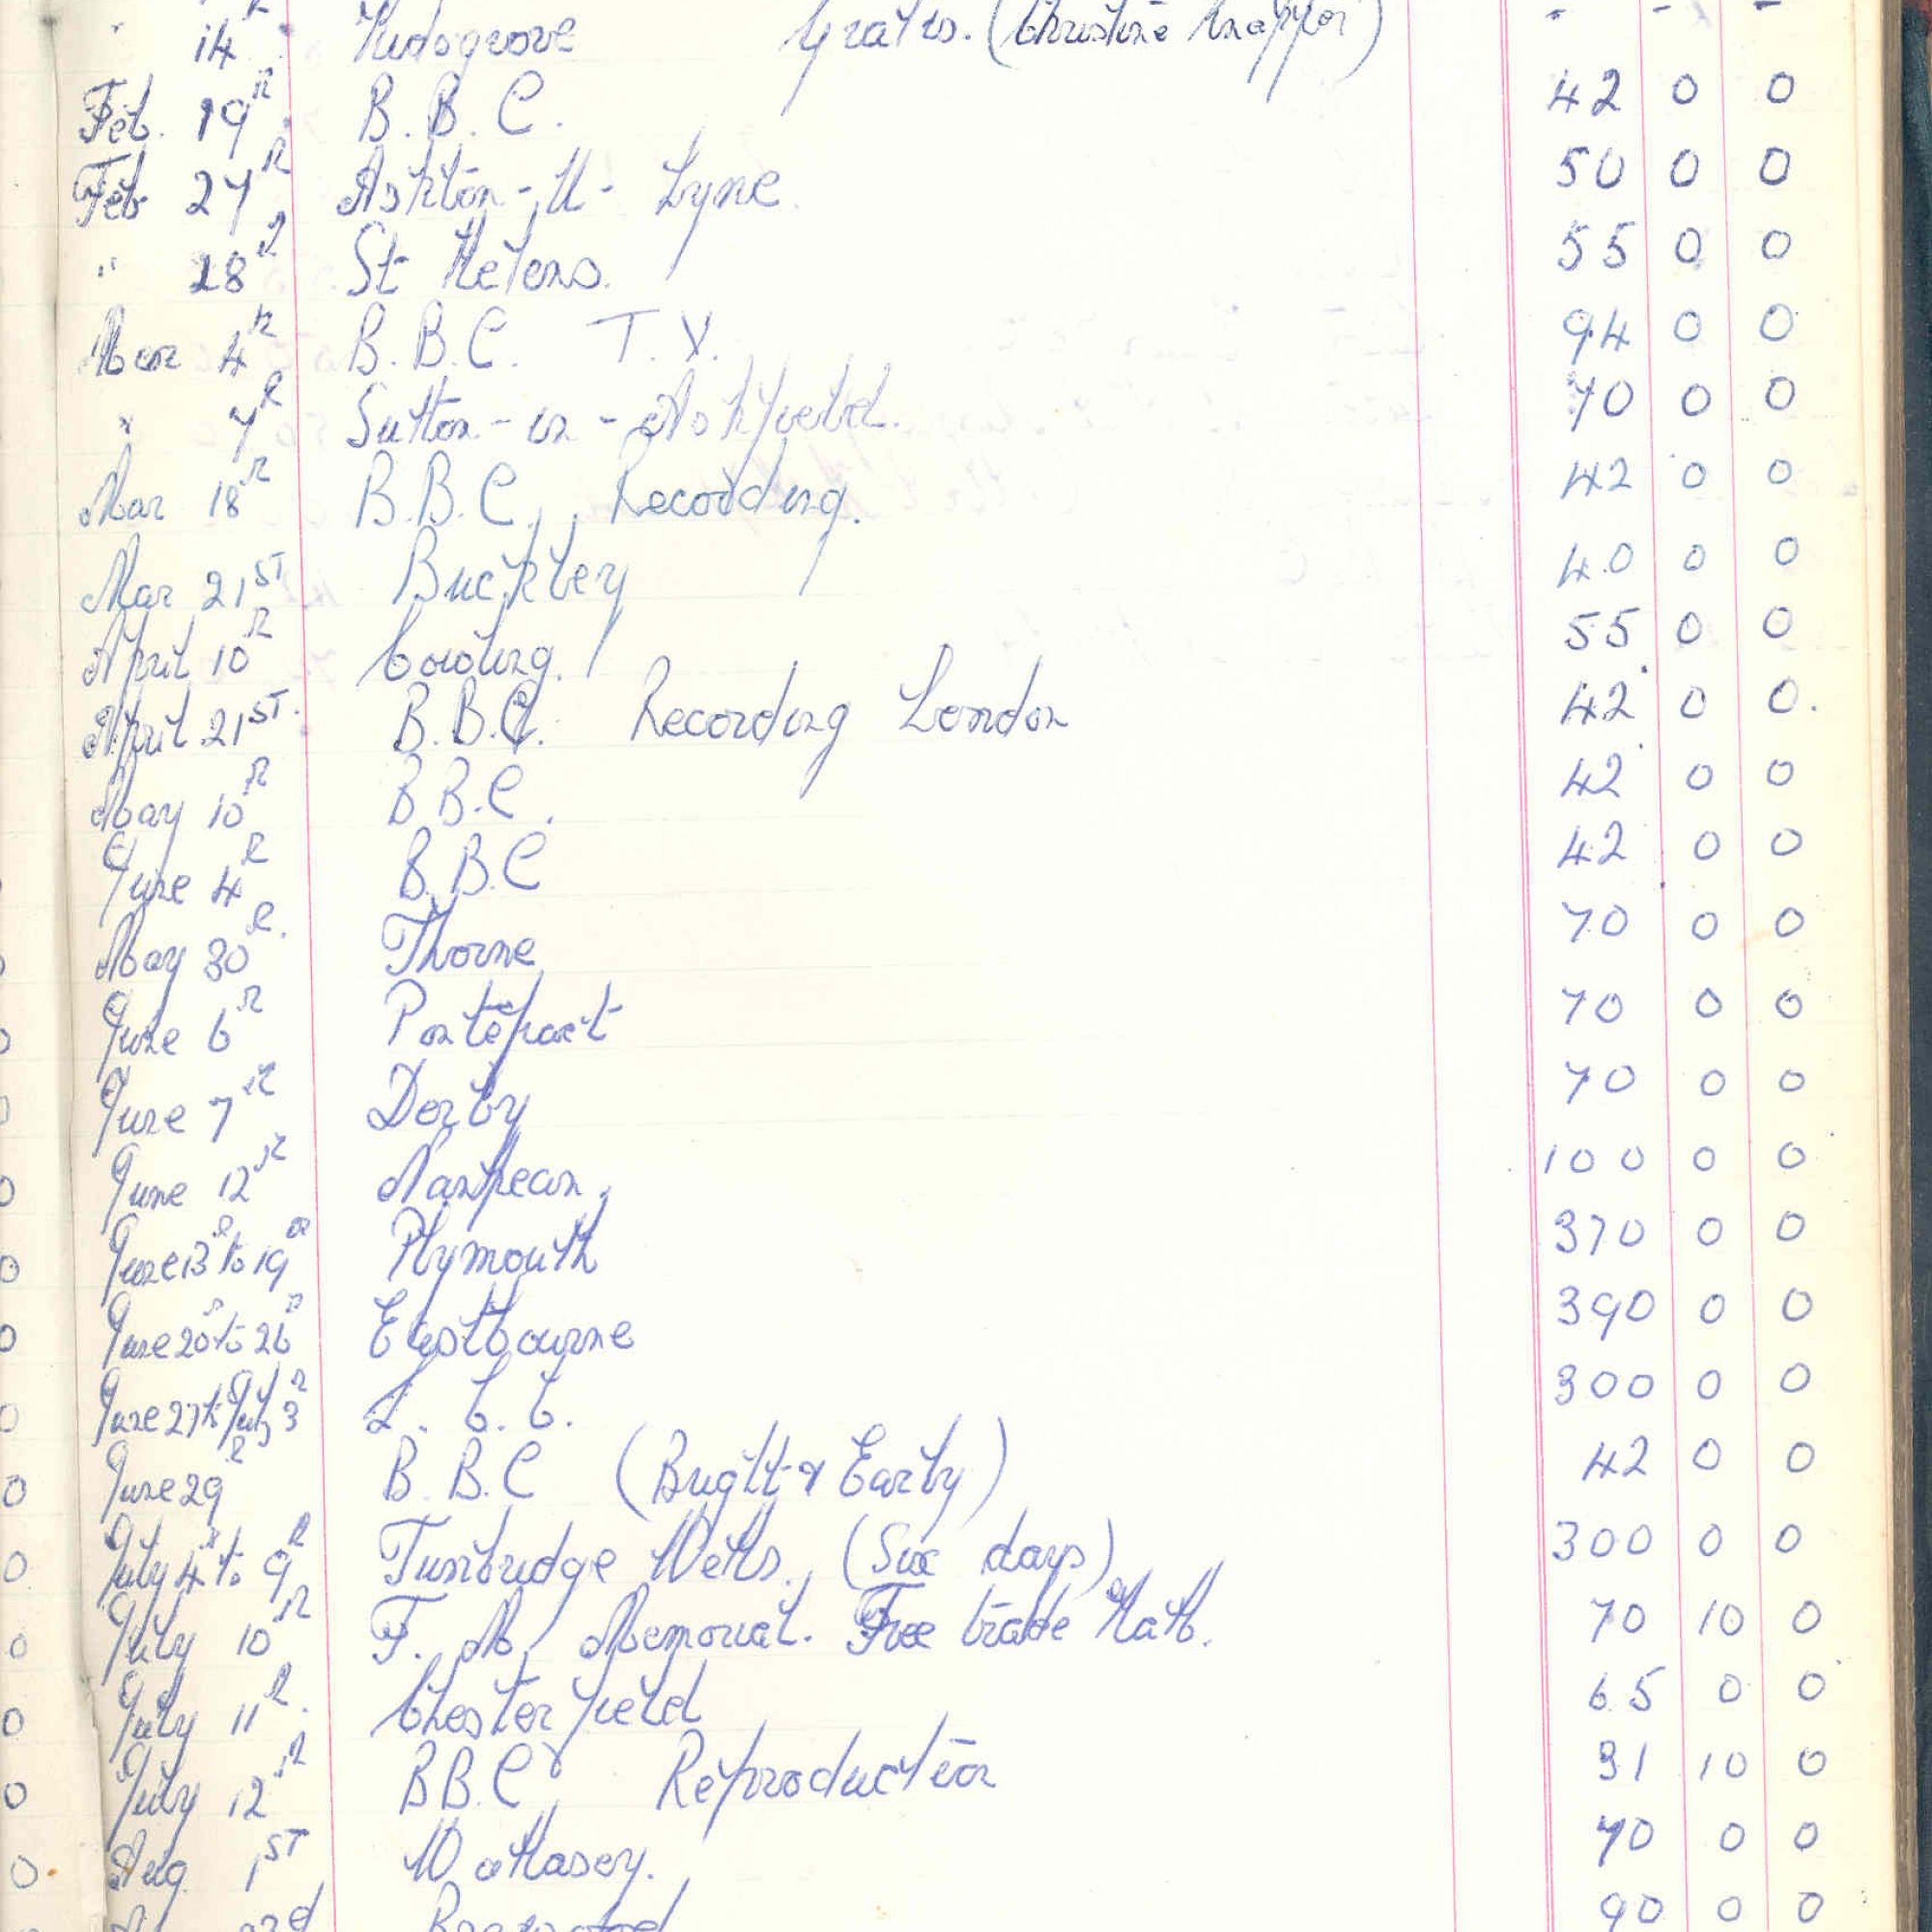 " 14 Kidsgrove Gratis. (Christine - - -
Feb. 19th B.B.C. 42 0 0
Feb 27th Ashton-U-Lyne 50 0 0
" 28th St Helens. 55 0 0
Mar 4th B.B.C. T.V. 94 0 0
" 7th Sutton-in-Ashfield. 70 0 0
Mar 18th B.B.C. Recording. 42 0 0
Mar 21ST Buckley 40 0 0
April 10th 55 0 0
April 21ST. B.B.C. Recording London 42 0 0.
May 10th B B.C. 42 0 0
June 4th B.B.C 42 0 0
May 30th. Thorne 70 0 0
June 6th Pontefract 70 0 0
June 7th Derby 70 0 0
June 12th Nanpean. 100 0 0
June 13th to 19th Plymouth 370 0 0
June 20th to 26th Eastbourne 390 0 0
June 27th July 3 L. C. C. 300 0 0
June 29th B.B.C (Bright & Early) 42 0 0
July 4th to 9th Tunbridge Wells. (Six days) 300 0 0
July 10th F. M. Memorial. Free trade Hall. 70 10 0
July 11th. Chesterfield 65 0 0
July 12th BBC Reproduction 31 10 0
Aug 1ST Wallasey. 70 0 0
90 0 0